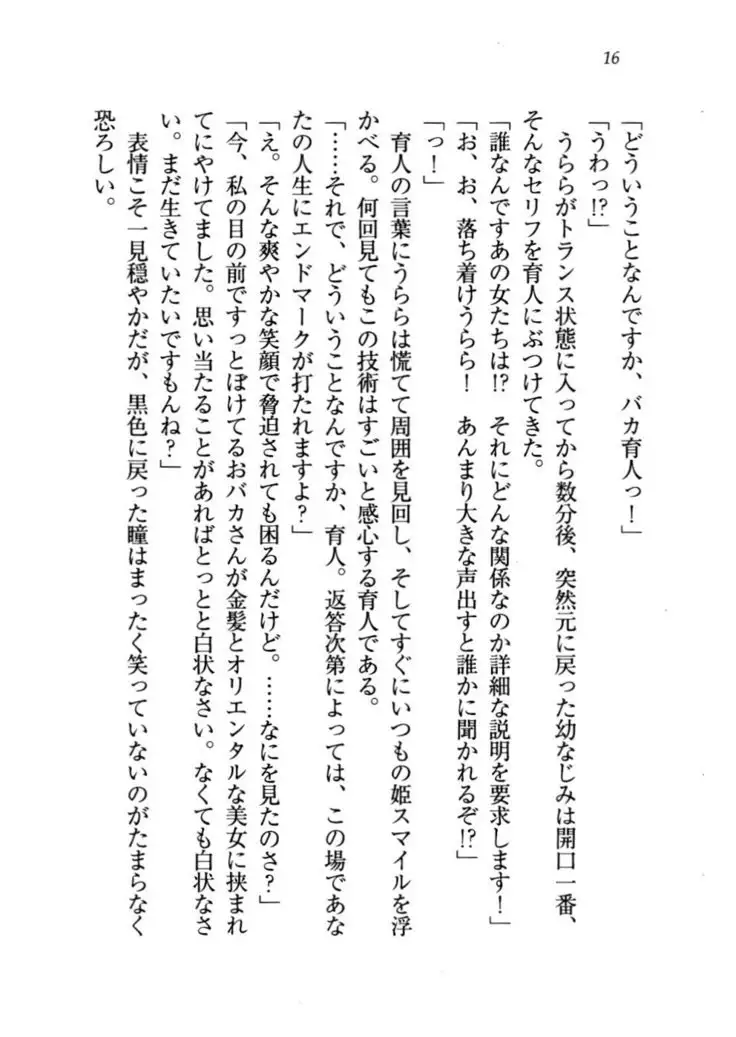 16
「どういうことなんですか、バカ育人っ！」
「うわっ!?」
　うららがトランス状態に入ってから数分後、突然元に戻った幼なじみは開口一番、
そんなセリフを育人にぶつけてきた。
「誰なんですあの女たちは!?　それにどんな関係なのか詳細な説明を要求します！」
「お、お、落ち着けうらら！　あんまり大きな声出すと誰かに聞かれるぞ!?」
「っ！」
　育人の言葉にうららは慌てて周囲を見回し、そしてすぐにいつもの姫スマイルを浮
かべる。何回見てもこの技術はすごいと感心する育人である。
「……それで、どういうことなんですか、育人。返答次第によっては、この場であな
たの人生にエンドマークが打たれますよ？」
「え。そんな爽やかな笑顔で脅迫されても困るんだけど。……なにを見たのさ？」
「今、私の目の前ですっとぼけてるおバカさんが金髪とオリエンタルな美女に挟まれ
てにやけてました。思い当たることがあればとっとと白状なさい。なくても白状なさ
い。まだ生きていたいですもんね？」
　表情こそ一見穏やかだが、黒色に戻った瞳はまったく笑っていないのがたまらなく
恐ろしい。